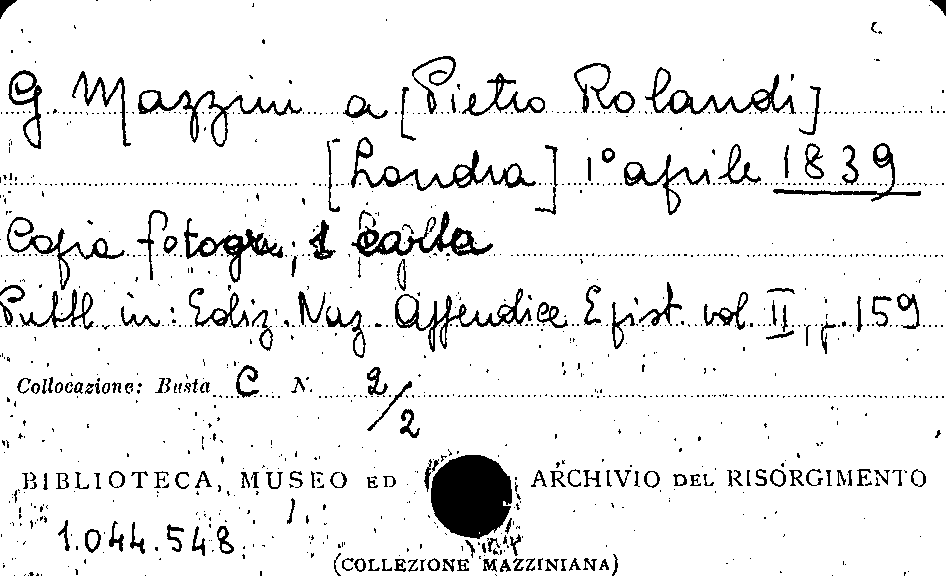 G. Mazzini a [Pietro Rolandi]
[Londra] 1° aprile 1839
Copia fotogr., 1 carta
Pubbl. in: Ediz. Naz. Appendice Epist. vol. II, p. 159
Collocazione: Busta C N. 2/2
BIBLIOTECA, MUSEO ED ARCHIVIO DEL RISORGIMENTO
1.044.548
(COLLEZIONE MAZZINIANA)